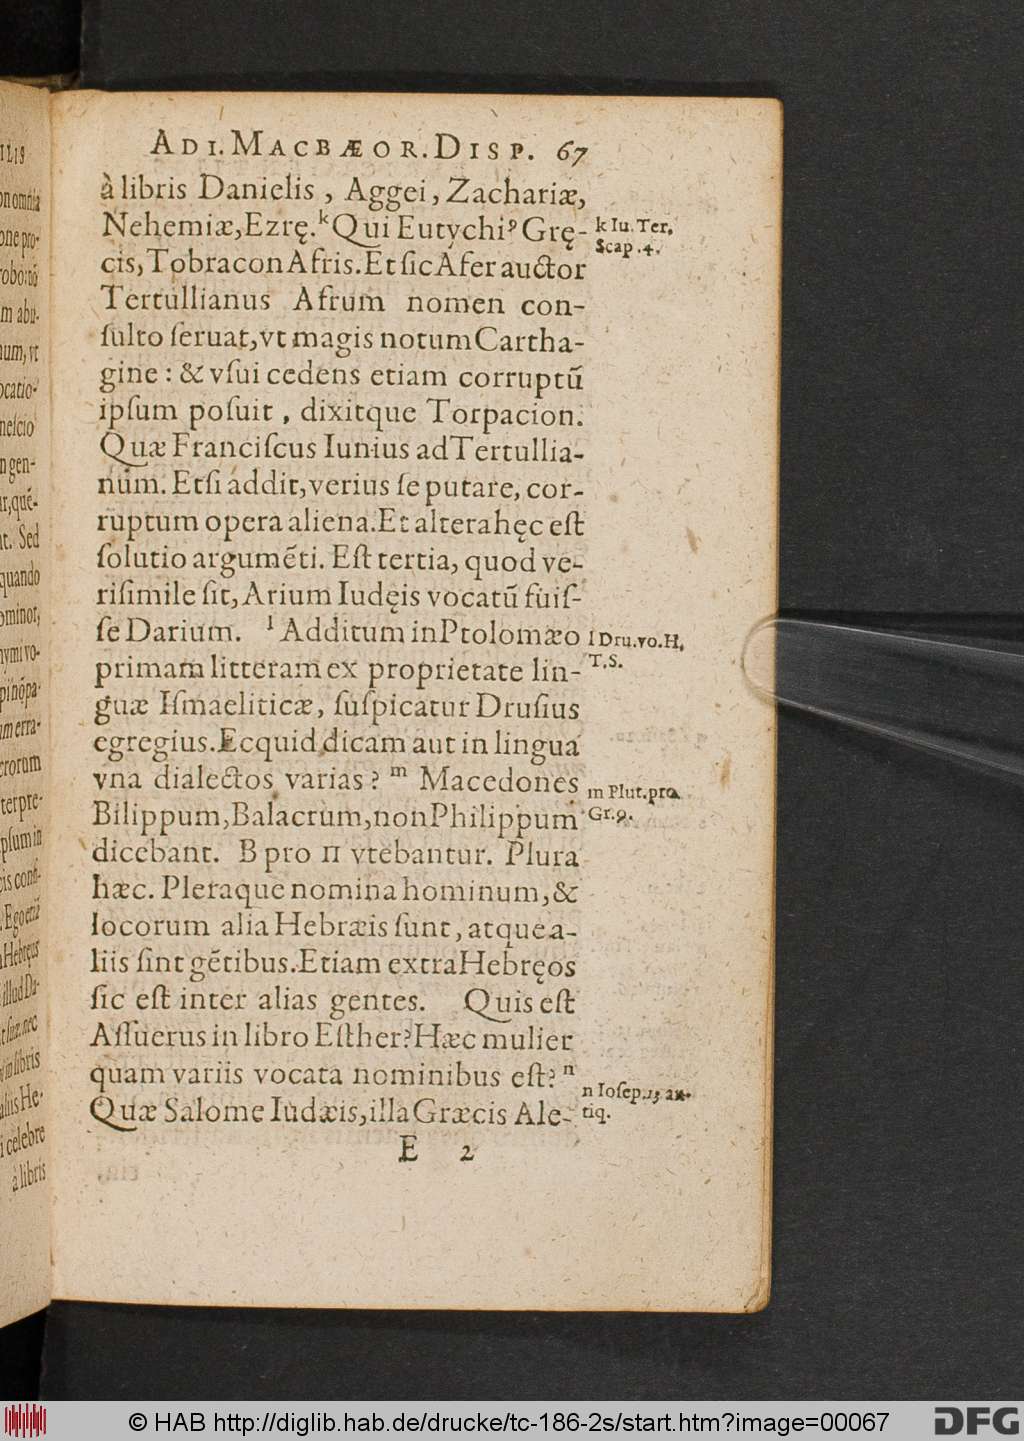 AD I. MACBÆOR. DISP. 67
à libris Danielis, Aggei, Zachariæ,
Nehemiæ, Ezrę. k Qui Eutychiꝰ Grę-
cis, Tobracon Afris. Et ſic Afer auctor
Tertullianus Afrum nomen con-
ſulto ſeruat, vt magis notum Cartha-
gine: & vſui cedens etiam corruptū
ipſum poſuit, dixitque Torpacion.
Quæ Franciſcus Iunius ad Tertullia-
num. Etſi addit, verius ſe putare, cor-
ruptum opera aliena. Et altera hęc eſt
ſolutio argumēti. Eſt tertia, quod ve-
riſimile ſit, Arium Iudęis vocatū fuiſ-
ſe Darium. l Additum in Ptolomæo
primam litteram ex proprietate lin-
guæ Iſmaeliticæ, ſuſpicatur Druſius
egregius. Ecquid dicam aut in lingua
vna dialectos varias? m Macedones
Bilippum, Balacrum, non Philippum
dicebant. B pro Π vtebantur. Plura
hæc. Pleraque nomina hominum, &
locorum alia Hebræis ſunt, atque a-
liis ſint gētibus. Etiam extra Hebręos
ſic eſt inter alias gentes. Quis eſt
Aſſuerus in libro Eſther? Hæc mulier
quam variis vocata nominibus eſt? n
Quæ Salome Iudæis, illa Græcis Ale-
E 2
k Iu. Ter.
Scap. 4.
l Dru. vo. H.
T. S.
m Plut. pro.
Gr. 9.
n Ioſep. 13 an-
tiq.
ILIS
one pro-
m abu-
num, vt
ocatio-
neſcio
n gen-
nt. Sed
quando
ominor,
nymi vo-
um erra-
terpre-
pſum in
Hebręus
illud Da-
in libris
aliis He-
i celebre
à libris
© HAB http://diglib.hab.de/drucke/tc-186-2s/start.htm?image=00067
DFG